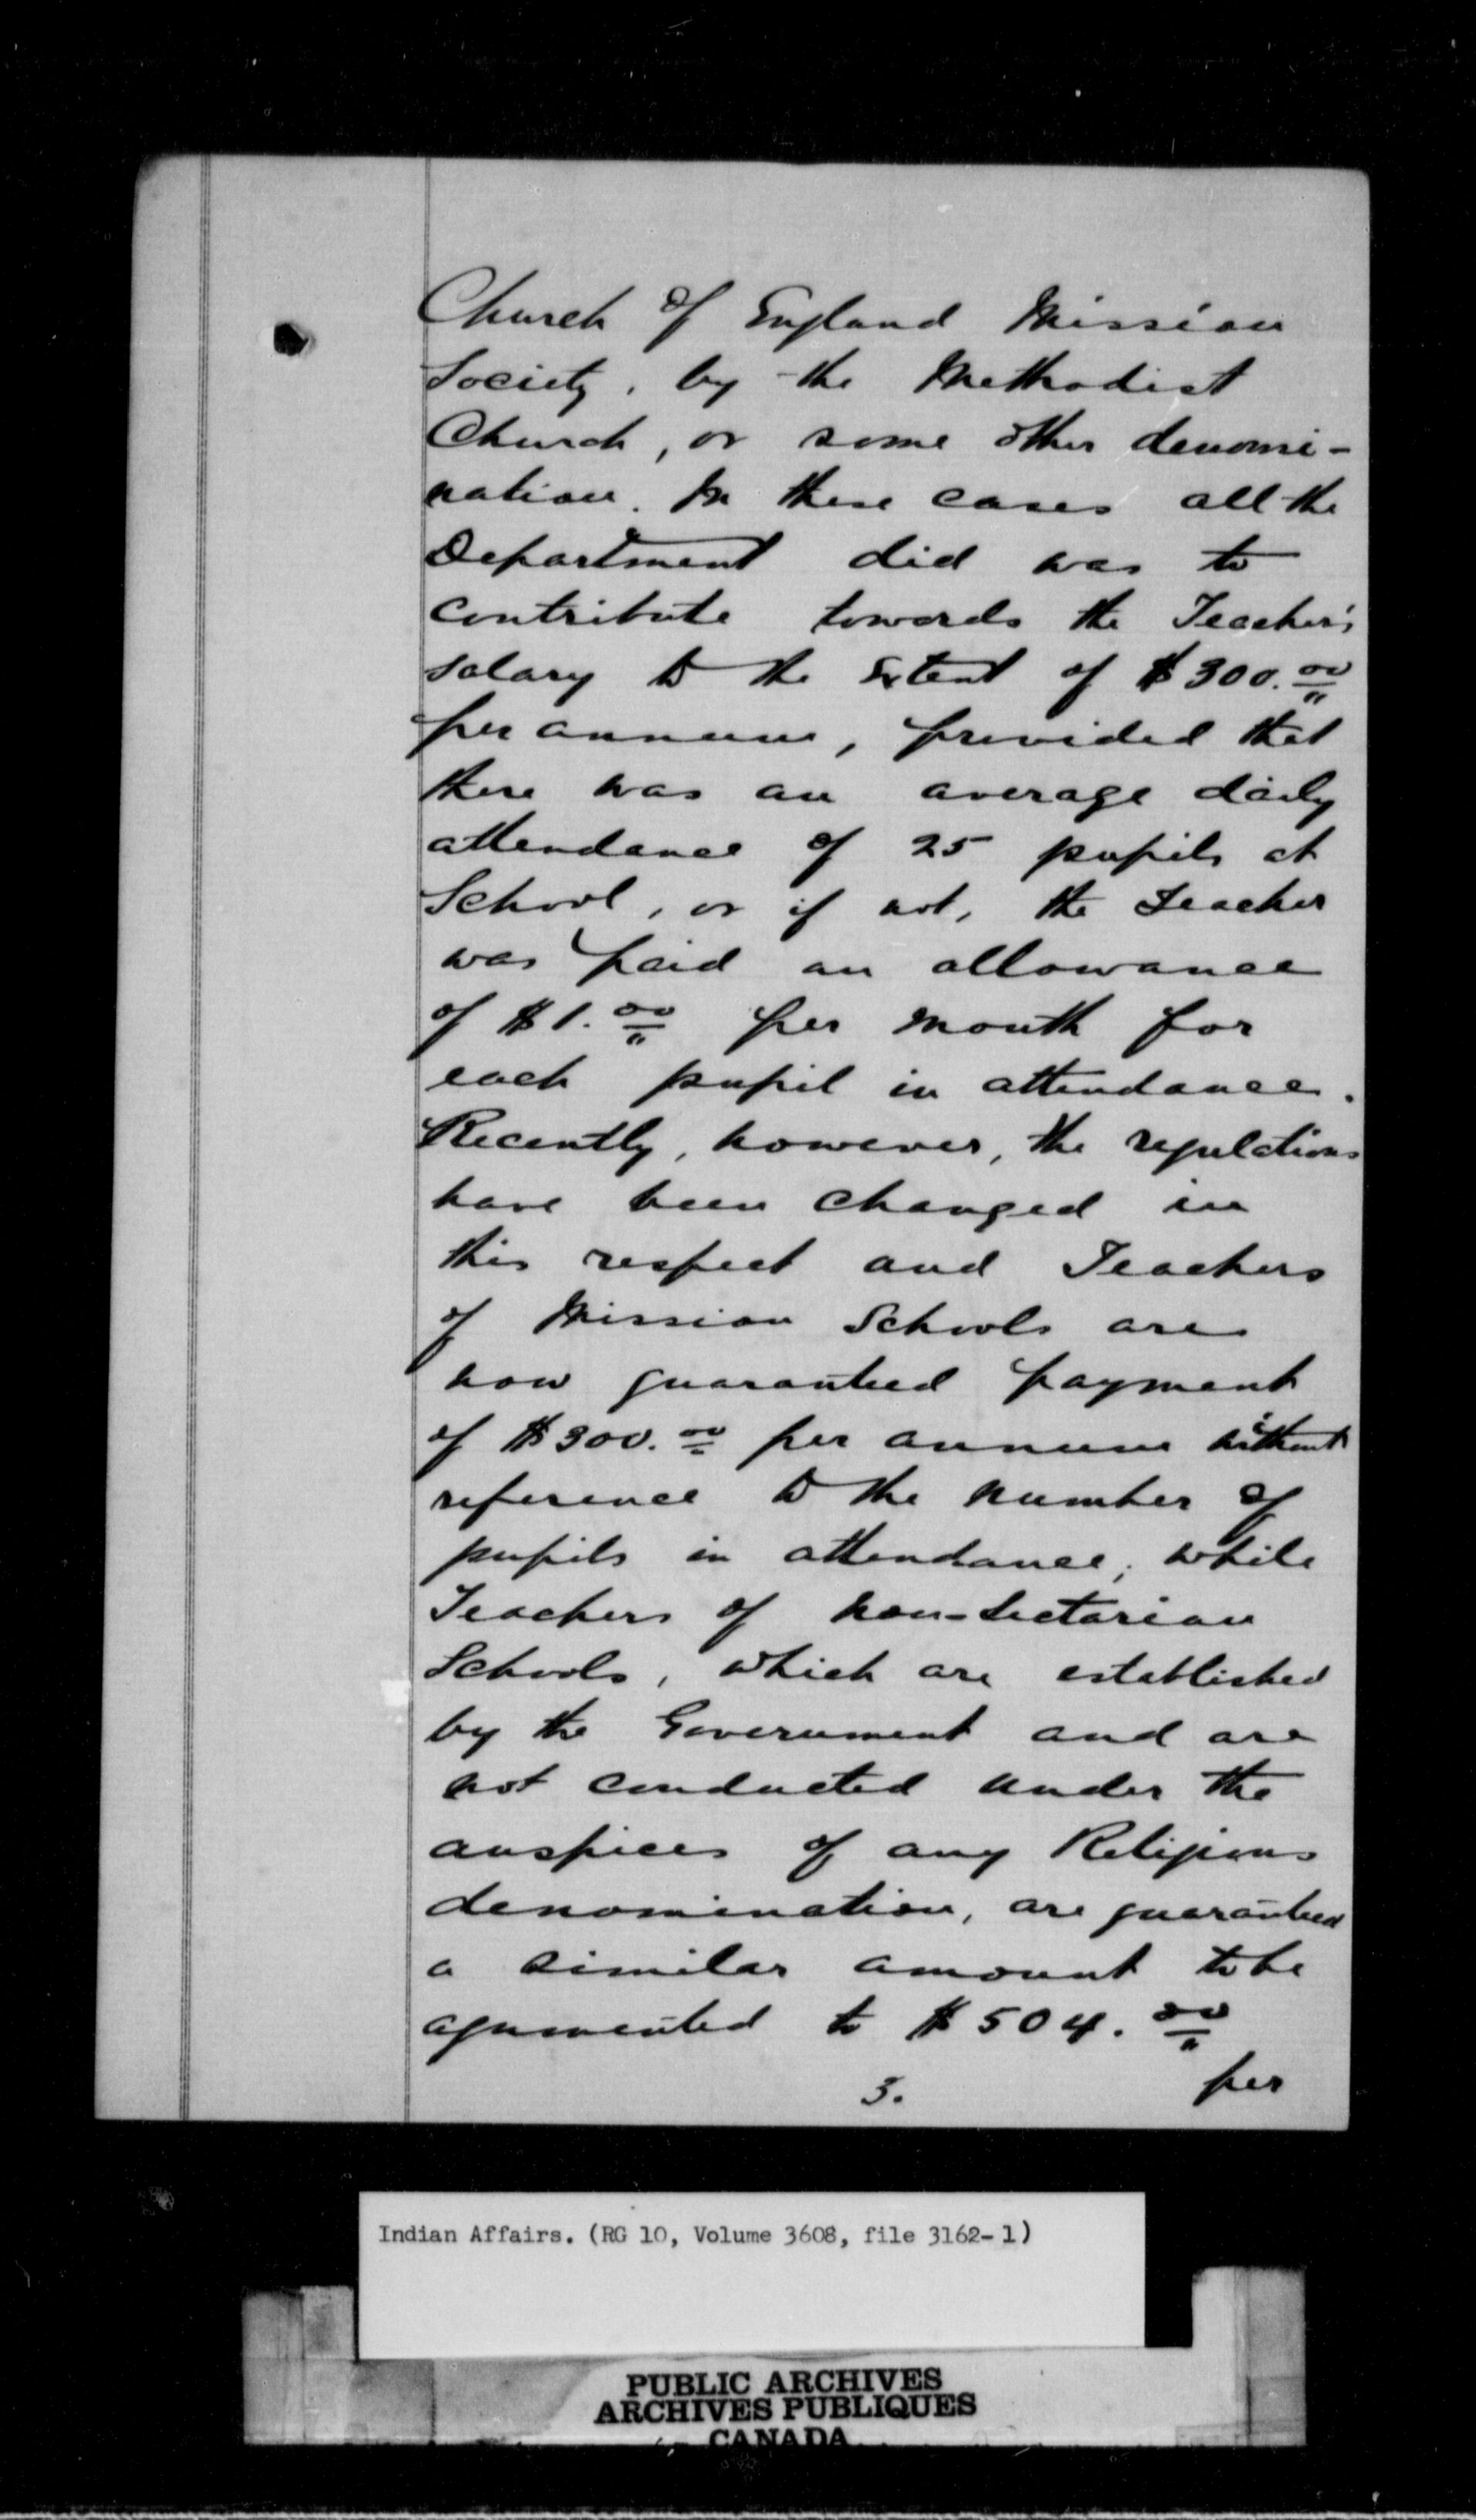 Church of England Mission
Society, by the Methodist
Church, or some other denomi-
nation. In these cases all the
Department did was to
contribute towards the Teacher's
salary to the Extent of $300.00
per annum, provided that
there was an average daily
attendance of 25 pupils at
School, or if not, the Teacher
was paid an allowance
of $1.00 per month for
each pupil in attendance.
Recently, however, the regulations
have been changed in
this respect and Teachers
of Mission Schools are
now guaranteed payment
of $300.00 per annum without
reference to the number of
pupils in attendance; while
Teachers of non-sectarian
Schools, which are established
by the Government and are
not conducted under the
auspices of any Religious
denomination, are guaranteed
a similar amount to be
augmented to $504.00
3. per
Indian Affairs. (RG 10, Volume 3608, file 3162-1)
PUBLIC ARCHIVES
ARCHIVES PUBLIQUES
CANADA